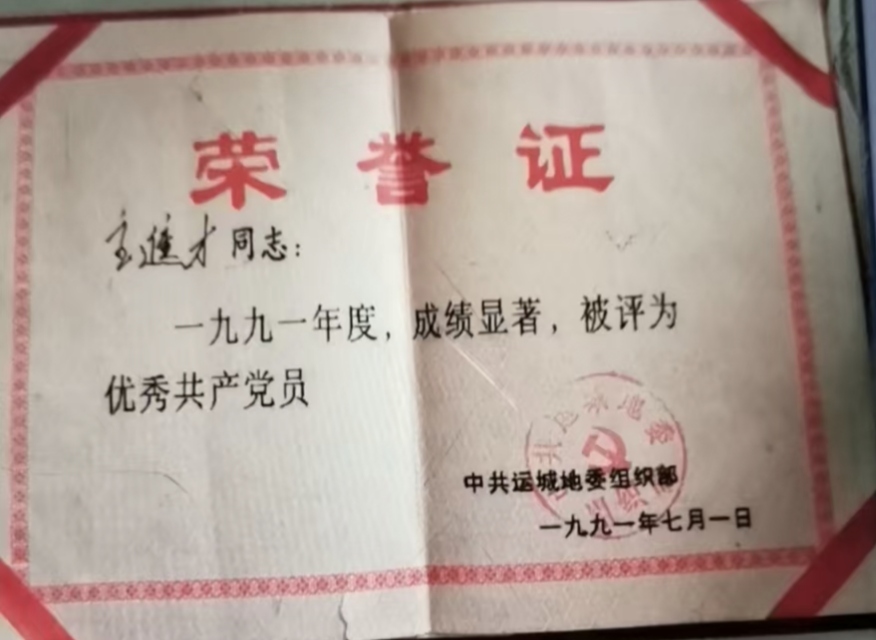 荣誉证
進才同志：
一九九一年度，成绩显著，被评为
优秀共产党员
中共运城地委组织部
一九九一年七月一日